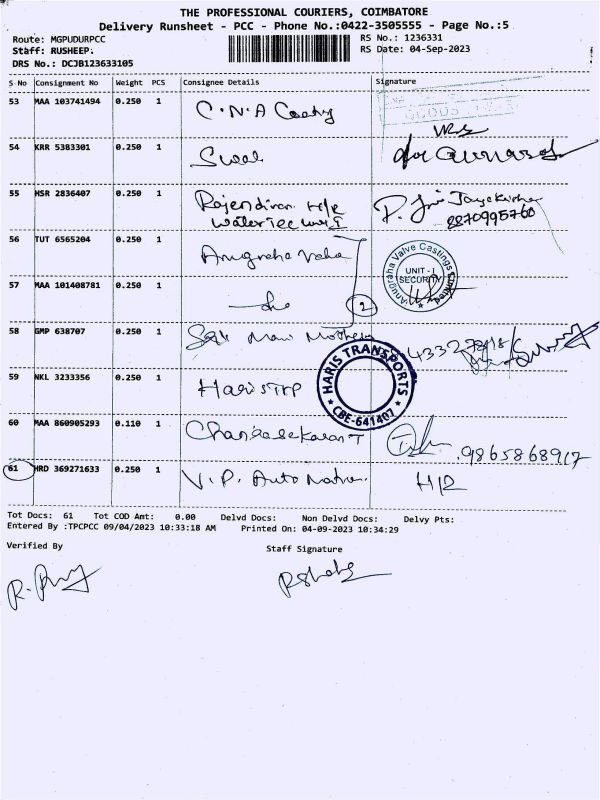 THE PROFESSIONAL COURIERS, COIMBATORE
Delivery Runsheet - PCC - Phone No.:0422-3505555 - Page No.:5
Route: MGPUDURPCC RS No.: 1236331
Staff: RUSHEEP. RS Date: 04-Sep-2023
DRS No.: DCJB123633105
S-No Consignment No Weight PCS Consignee Details Signature
53 MAA 103741494 0.250 1 C.N.A
54 KRR 5383301 0.250 1
55 HSR 2836407 0.250 1 Rajendiran H/R
8870995760
56 TUT 6565204 0.250 1 Anugraha
Anugraha Valve Castings Limited
UNIT - I
SECURITY
57 MAA 101408781 0.250 1 2
58 GMP 638707 0.250 1
HARIS TRANSPORTS
CBE-641407
59 NKL 3233356 0.250 1 Haris TRP
60 MAA 860905293 0.110 1 Chandrasekaran T
61 HRD 369271633 0.250 1 V.P. H/R
Tot Docs: 61 Tot COD Amt: 0.00 Delvd Docs: Non Delvd Docs: Delvy Pts:
Entered By :TPCPCC 09/04/2023 10:33:18 AM Printed On: 04-09-2023 10:34:29
Verified By Staff Signature